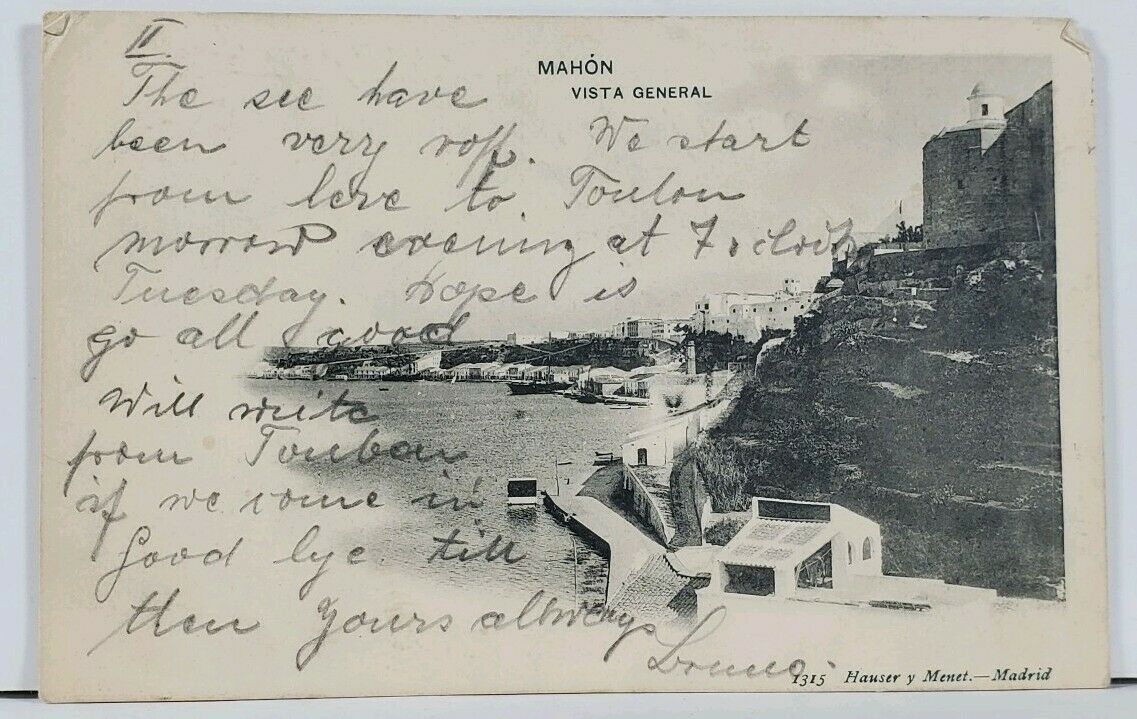 II
MAHÓN
VISTA GENERAL
The see have
been very roff. We start
from here to Toulon
morrow evening at 7 o'clock
Tuesday. Hope is
go all good
Will write
from Toubon
if we come in
Good bye till
then yours allways
Bruno.
1315 Hauser y Menet.—Madrid